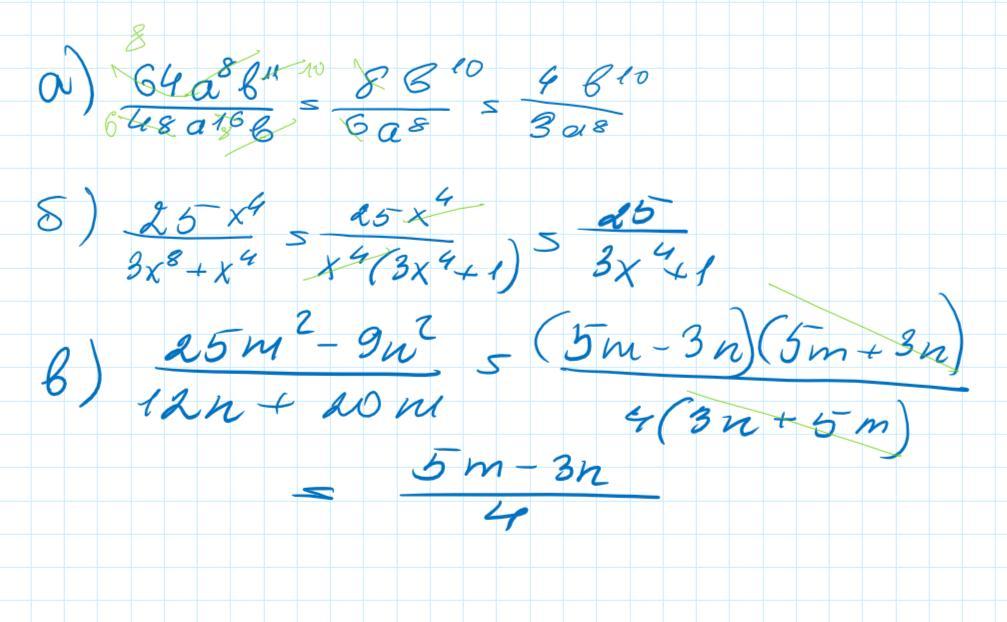 а) 64a⁸b¹¹ / 48a¹⁶b = 8b¹⁰ / 6a⁸ = 4b¹⁰ / 3a⁸
б) 25x⁴ / 3x⁸ + x⁴ = 25x⁴ / x⁴(3x⁴+1) = 25 / 3x⁴+1
в) 25m² - 9n² / 12n + 20m = (5m - 3n)(5m + 3n) / 4(3n + 5m)
= 5m - 3n / 4